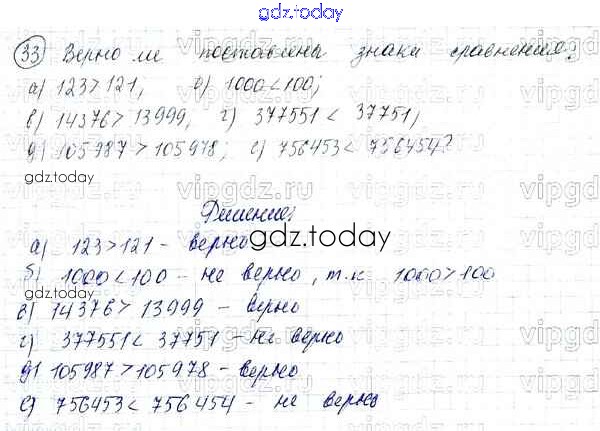 gdz.today
33 Верно ли поставлены знаки сравнения:
а) 123 > 121, б) 1000 < 100;
в) 14376 > 13999, г) 377551 < 37751,
д) 105987 > 105978; е) 756453 < 756454?
Решение:
а) 123 > 121 - верно
gdz.today
б) 1000 < 100 - не верно, т.к 1000 > 100
в) 14376 > 13999 - верно
г) 377551 < 37751 - не верно
д) 105987 > 105978 - верно
е) 756453 < 756454 - не верно
gdz.today
vipgdz.ru